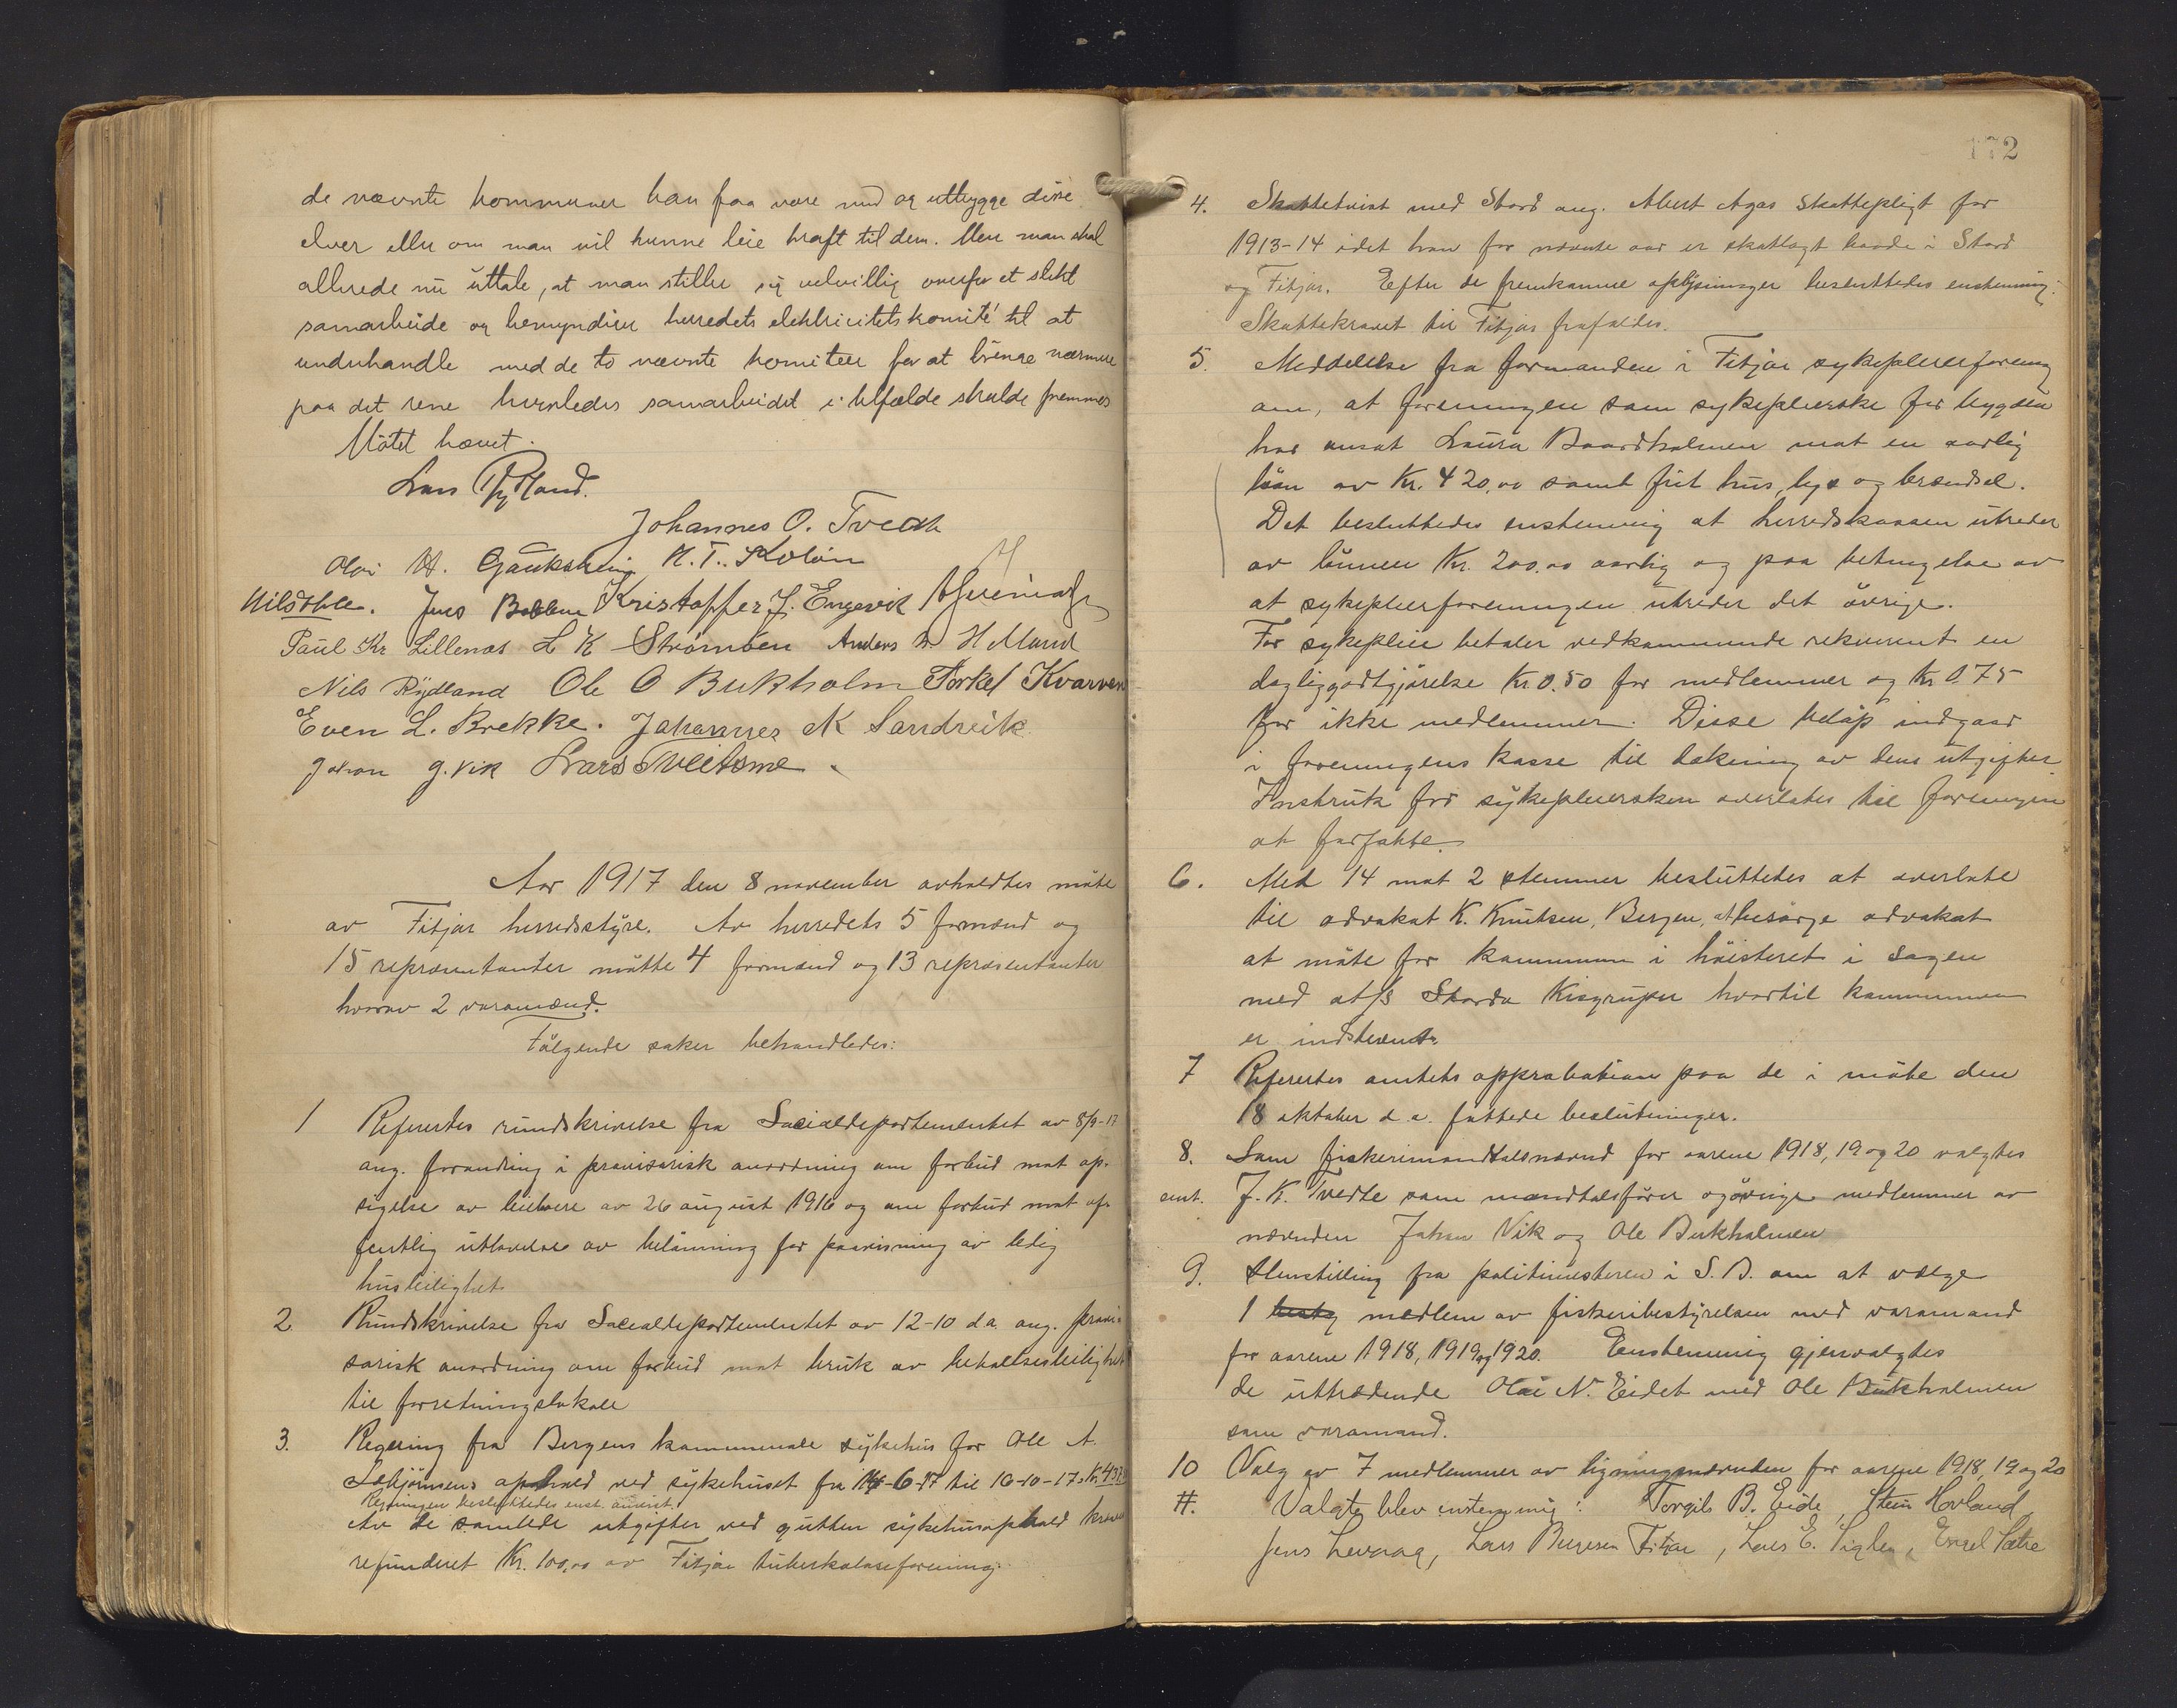 de nævnte kommuner kan faa være med og utbygge disse
elver eller om man vil kunne leie kraft til dem. Men man skal
allerede nu uttale, at man stiller sig velvillig overfor et slikt
samarbeide og bemyndiger herredets elektricitetskomité til at
underhandle med de to nævnte komiteer for at bringe nærmere
paa det rene hvorledes samarbeidet i tilfælde skulde fremmes
Møtet hævet.
Lars Rydland.
Johannes O. Tvedt
Olai H. Gaukshein N. T. Koløen
Nils Ohle. Jens Bebben Kristoffer J. Engevik
Paul Kr Lillenæs L K Strømøen Anders Helland
Nils Rydland Ole O Bukholm Torkel Kvarven
Even L. Brekke. Johannes K Sandvik
Johan J. Vik Lars Tveitsme
Aar 1917 den 8 november avholdtes møte
av Fitjar herredsstyre. Av herredets 5 formænd og
15 repræsentanter møtte 4 formænd og 13 repræsentanter
hvorav 2 varamænd.
Følgende saker behandledes:
1 Refertes rundskrivelse fra Socialdepartementet av 8/9-17
ang. forandring i provisorisk anordning om forbud mot op-
sigelse av leieboere av 26 august 1916 og om forbud mot of-
fentlig utlovelse av belønning for paavisning av ledig
husleilighet
2. Rundskrivelse fra Socialdepartementet av 12-10 d.a. ang. provi-
sorisk anordning om forbud mot bruk av beboelsesleilighet
til forretningslokale
3. Regning fra Bergens kommunale sykehus for Ole A.
ophold ved sykehuset fra 14-6-17 til 16-10-17
Regningen besluttedes enst. anvist.
Av de samlede utgifter ved gutten sykehusophold kræves
refunderet Kr. 100,00 av Fitjar tuberkuloseforening.
172
4. Skattetvist med Stord ang. Albert Agas skattepligt for
1913-14 idet han for nævnte aar er skatlagt baade i Stord
og Fitjar. Efter de fremkomne oplysninger besluttedes enstemmig:
Skattekravet til Fitjar frafaldes.
5. Meddelelse fra formanden i Fitjar sykepleieforening
om, at foreningen som sykepleierske for bygden
har ansat Laura Baardholmen mot en aarlig
løn av Kr. 420,00 samt frit hus, lys og brændsel.
Det besluttedes enstemmig at herredskassen utreder
av lønnen Kr. 200,00 aarlig og paa betingelse av
at sykepleieforeningen utreder det øvrige.
For sykepleie betaler vedkommende rekvirent en
daglig godtgjørelse Kr 0.50 for medlemmer og Kr 0.75
for ikke medlemmer. Disse beløp indgaar
i foreningens kasse til dækning av dens utgifter
Instruks for sykepleiersken overlates til foreningen
at forfatte.
6. Med 14 mot 2 stemmer besluttedes at overlate
til advokat K. Knutsen, Bergen, at besørge advokat
at møte for kommunen i høiesteret i sagen
med at/s Stordø Kisgruper hvortil kommunen
er indstevnt.
7 Refertes amtets approbation paa de i møte den
18 oktober d.a. fattede beslutninger.
8. Som fiskerimandtalsnævnd for aarene 1918, 19 og 20 valgtes
enst. J. K. Tvedte som mandtalsfører og øvrige medlemmer av
nævnden Johan Vik og Ole Bukholmen
9. Henstilling fra politimesteren i S.B. om at vælge
1 medlem av fiskeribestyrelsen med varamand
for aarene 1918, 1919 og 1920. Enstemmig gjenvalgtes
de uttrædende Olai N. Eidet med Ole Bukholmen
som varamand.
10 Valg av 7 medlemmer av ligningsnævnden for aarene 1918, 19 og 20
#. Valgte blev enstemmig: Torgils B. Eide, Stein Hovland
Jens Levaag, Lars Fitjar, Lars E. Engel Sætre